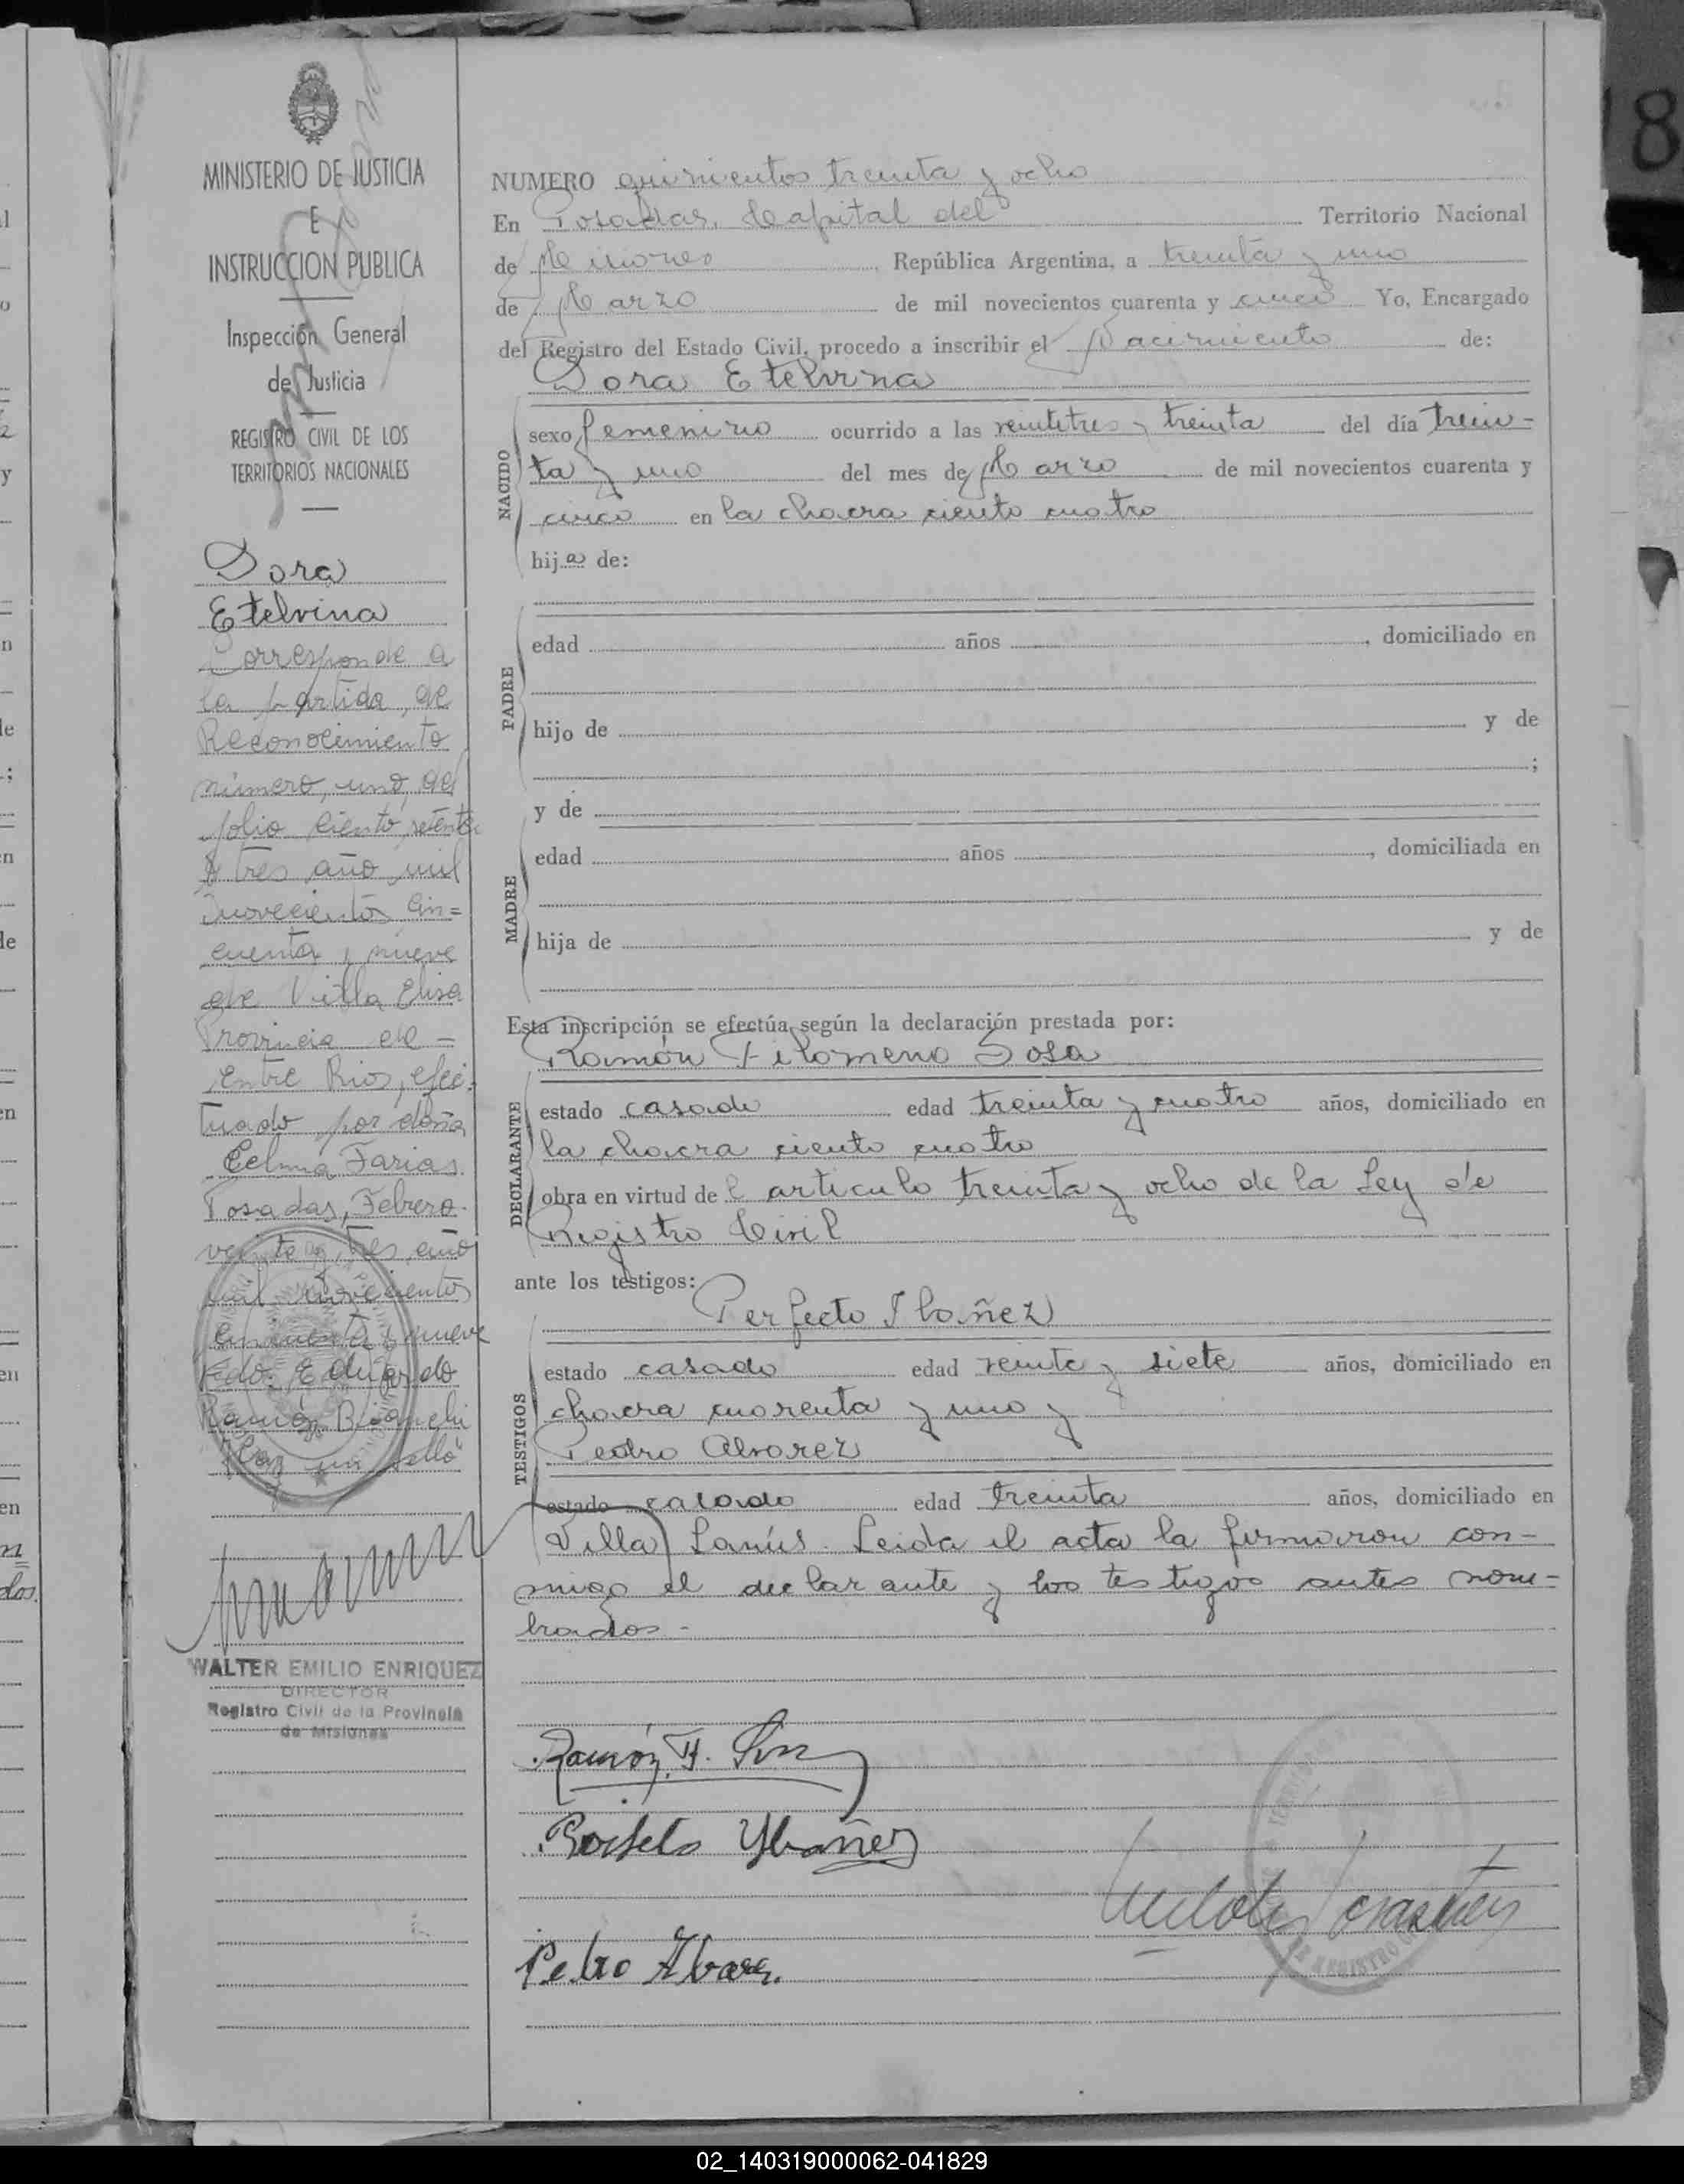 MINISTERIO DE JUSTICIA
E
INSTRUCCION PUBLICA
Inspección General
de Justicia
REGISTRO CIVIL DE LOS
TERRITORIOS NACIONALES
Dora
Etelvina
Corresponde a
la partida de
Reconocimiento
número, uno, del
folio ciento setenta
y tres año mil
novecientos cin=
cuenta y nueve
de Villa Elisa
Provincia de -
Entre Rios, efec-
tuado por doña
Celma Farias.
Posadas, Febrero
veinte y tres año
mil novecientos
cincuenta y nueve
Fdo: Eduardo
Ramón Bianchi
Hay un sello
WALTER EMILIO ENRIQUEZ
DIRECTOR
Registro Civil de la Provincia
de Misiones
NUMERO quinientos treinta y ocho
En Posadas, Capital del Territorio Nacional
de Misiones, República Argentina, a treinta y uno
de Marzo de mil novecientos cuarenta y cinco Yo, Encargado
del Registro del Estado Civil, procedo a inscribir el Nacimiento de:
Dora Etelvina
NACIDO
sexo femenino ocurrido a las veintitres y treinta del día trein-
ta y uno del mes de Marzo de mil novecientos cuarenta y
cinco en la chacra ciento cuatro
hija de:
PADRE
edad años , domiciliado en
hijo de y de
;
y de
MADRE
edad años , domiciliada en
hija de y de
Esta inscripción se efectúa según la declaración prestada por:
Ramón Filomeno Sosa
DECLARANTE
estado casado edad treinta y cuatro años, domiciliado en
la chacra ciento cuatro
obra en virtud del articulo treinta y ocho de la Ley de
Registro Civil
ante los testigos:
Perfecto Ibañez
TESTIGOS
estado casado edad veinte y siete años, domiciliado en
chacra cuarenta y uno y
Pedro Alvarez
estado casado edad treinta años, domiciliado en
Villa Lanús. Leida el acta la firmaron con-
migo el declarante y los testigos antes nom-
brados -
Ramón F. Sosa
Perfecto Ybañez
Pedro Alvarez.
REGISTRO
8
02_140319000062-041829